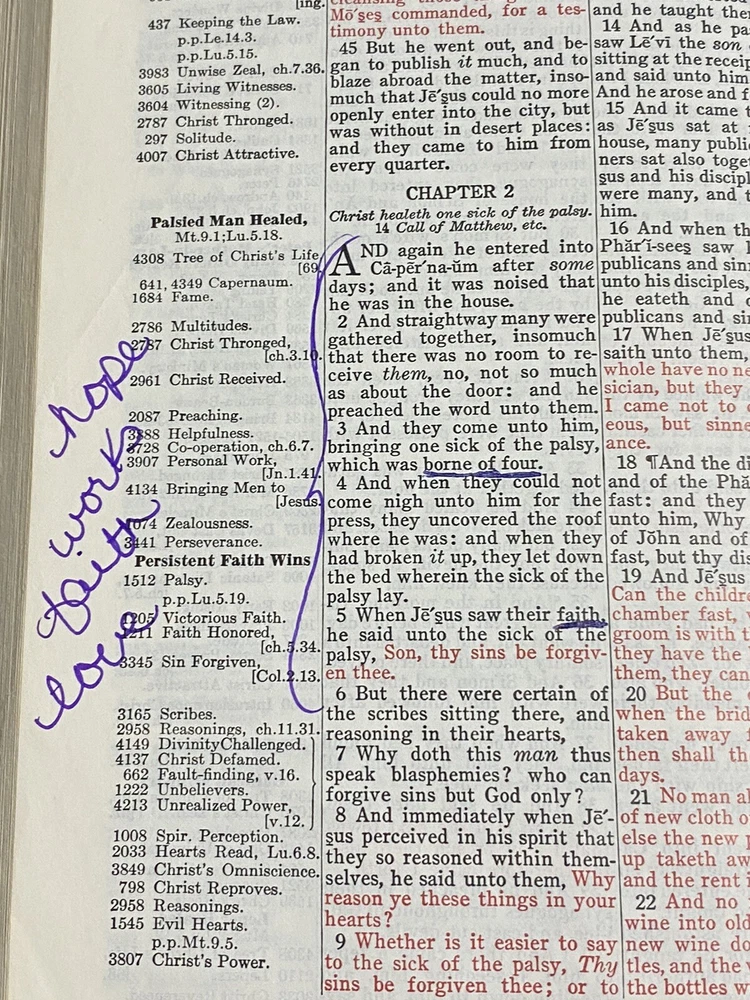 [ing.
437 Keeping the Law.
p.p.Le.14.3.
p.p.Lu.5.15.
3983 Unwise Zeal, ch.7.36.
3605 Living Witnesses.
3604 Witnessing (2).
2787 Christ Thronged.
297 Solitude.
4007 Christ Attractive.
Palsied Man Healed,
Mt.9.1;Lu.5.18.
4308 Tree of Christ's Life
[69.
641, 4349 Capernaum.
1684 Fame.
2786 Multitudes.
2787 Christ Thronged,
[ch.3.10.
2961 Christ Received.
2087 Preaching.
3888 Helpfulness.
3728 Co-operation, ch.6.7.
3907 Personal Work,
[Jn.1.41.
4134 Bringing Men to
[Jesus.
1074 Zealousness.
3441 Perseverance.
Persistent Faith Wins
1512 Palsy.
p.p.Lu.5.19.
1205 Victorious Faith.
1211 Faith Honored,
[ch.5.34.
3345 Sin Forgiven,
[Col.2.13.
3165 Scribes.
2958 Reasonings, ch.11.31.
4149 DivinityChallenged.
4137 Christ Defamed.
662 Fault-finding, v.16.
1222 Unbelievers.
4213 Unrealized Power,
[v.12.
1008 Spir. Perception.
2033 Hearts Read, Lu.6.8.
3849 Christ's Omniscience.
798 Christ Reproves.
2958 Reasonings.
1545 Evil Hearts.
p.p.Mt.9.5.
3807 Christ's Power.
hope
works
faith
love
Mō'ṣeṣ commanded, for a tes-
timony unto them.
45 But he went out, and be-
gan to publish it much, and to
blaze abroad the matter, inso-
much that Jē'ṣus could no more
openly enter into the city, but
was without in desert places:
and they came to him from
every quarter.
CHAPTER 2
Christ healeth one sick of the palsy.
14 Call of Matthew, etc.
AND again he entered into
Câ-pẽr'na-ŭm after some
days; and it was noised that
he was in the house.
2 And straightway many were
gathered together, insomuch
that there was no room to re-
ceive them, no, not so much
as about the door: and he
preached the word unto them.
3 And they come unto him,
bringing one sick of the palsy,
which was borne of four.
4 And when they could not
come nigh unto him for the
press, they uncovered the roof
where he was: and when they
had broken it up, they let down
the bed wherein the sick of the
palsy lay.
5 When Jē'ṣus saw their faith,
he said unto the sick of the
palsy, Son, thy sins be forgiv-
en thee.
6 But there were certain of
the scribes sitting there, and
reasoning in their hearts,
7 Why doth this man thus
speak blasphemies? who can
forgive sins but God only?
8 And immediately when Jē'-
ṣus perceived in his spirit that
they so reasoned within them-
selves, he said unto them, Why
reason ye these things in your
hearts?
9 Whether is it easier to say
to the sick of the palsy, Thy
sins be forgiven thee; or to
and he taught the
14 And as he pa
saw Lē'vī the son
sitting at the receip
and said unto him
And he arose and f
15 And it came t
as Jē'ṣus sat at
house, many publi
ners sat also toge
ṣus and his discipl
were many, and t
him.
16 And when th
Phăr'ĭ-seeṣ saw
publicans and sin
unto his disciples,
he eateth and
publicans and si
17 When Jē'ṣus
saith unto them,
whole have no ne
sician, but they
I came not to
eous, but sinne
ance.
18 ¶And the di
and of the Phă
fast: and they
unto him, Why
of Jŏhn and of
fast, but thy dis
19 And Jē'ṣus
Can the childre
chamber fast,
groom is with t
they have the
them, they can
20 But the
when the brid
taken away
then shall th
days.
21 No man al
of new cloth o
else the new
up taketh aw
and the rent i
22 And no
wine into old
new wine do
tles, and the
the bottles w